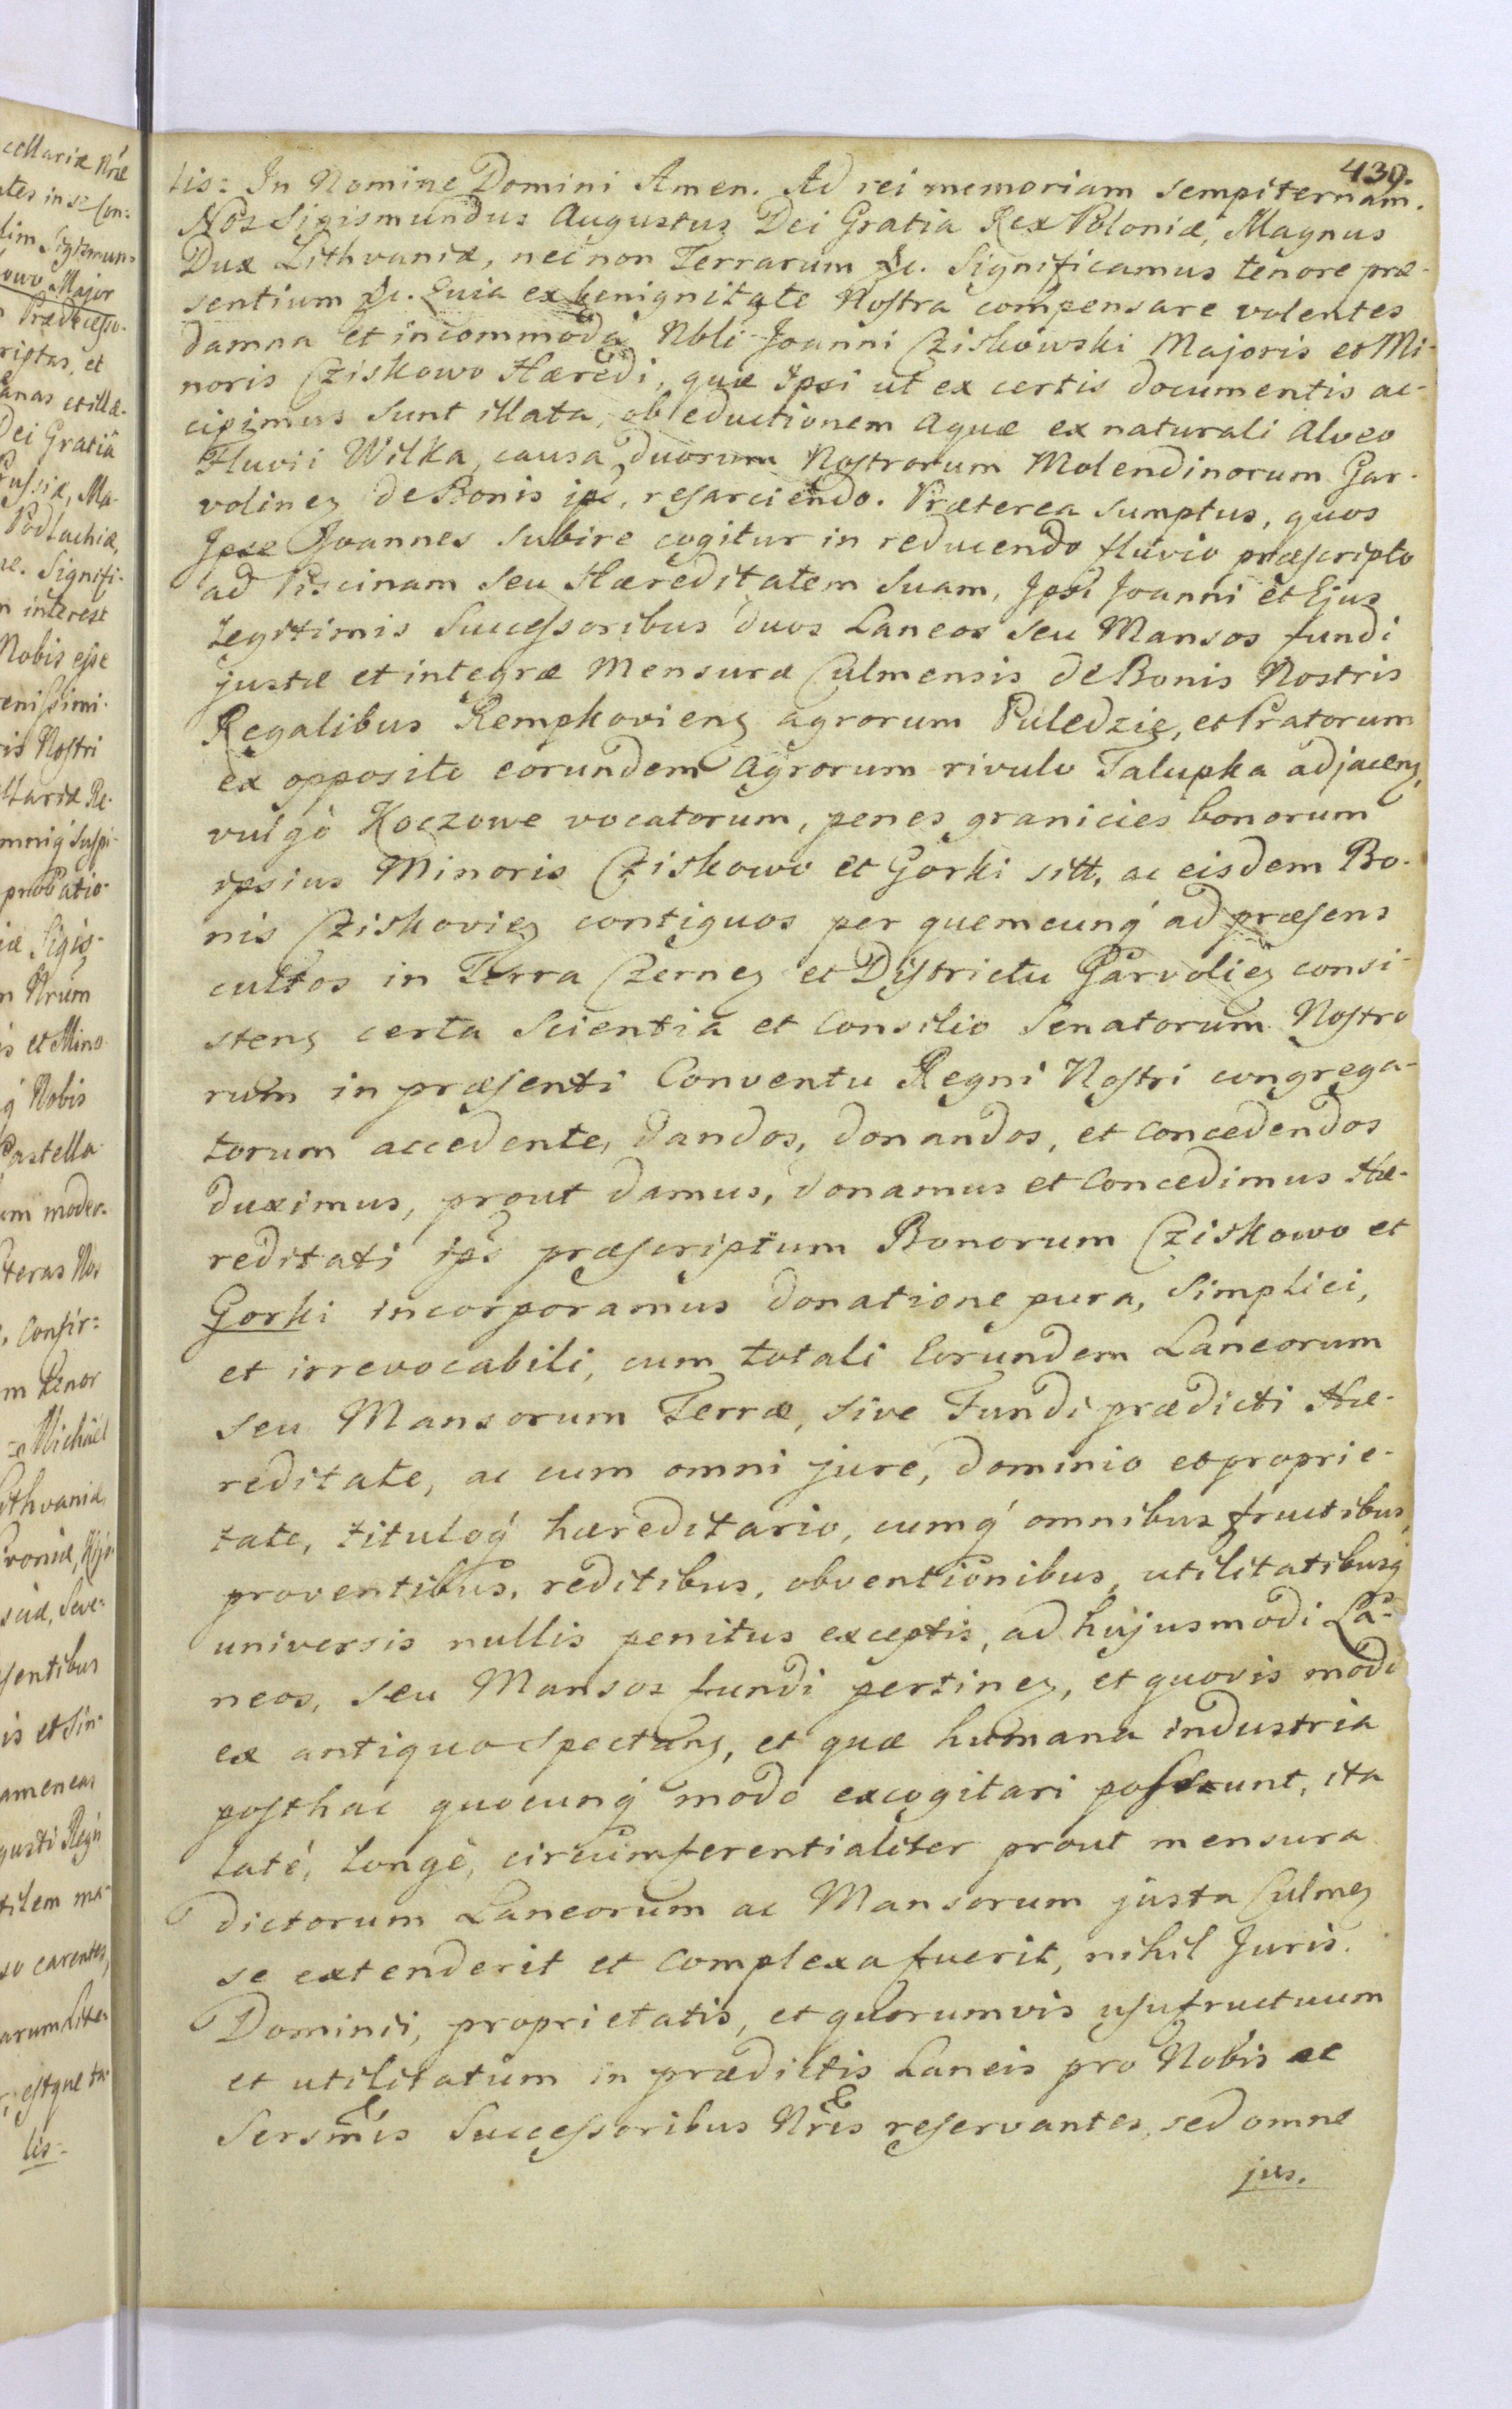 439.
lis: In Nomine Domini Amen. Ad rei memoriam sempiternam.
Nos Sigismundus Augustus Dei Gratia Rex Poloniæ, Magnus
Dux Lithvaniæ, nec non Terrarum &c. Significamus tenore præ-
sentium &c. Quia ex benignitate Nostra compensare volentes
damna et incommoda Nbli Joanni Cziskowski Majoris et Mi-
noris Cziskowo Hæredi, quæ Ipsi ut ex certis documentis ac-
cipimus sunt illata, ob eductionem aquæ ex naturali alveo
Fluvii Wilka, causa duorum Nostrorum Molendinorum Gar-
volineȝ de Bonis ips, resarciendo. Præterea sumptus, quos
Ipse Joannes subire cogitur in reducendo fluvio præscripto
ad Piscinam seu Hæreditatem Suam, Ipsi Joanni et Ejus
Legitimis Successoribus duos Laneos seu Mansos fundi
justæ et integræ Mensuræ Culmensis de Bonis Nostris
Regalibus Rempkovienȝ agrorum Puledzie, et Pratorum
ex opposito eorundem Agrorum rivulo Talupka adjacenȝ,
vulgò Koczowe vocatorum, penes granicies bonorum
ipsius Minoris Cziskowo et Gorki sitt, ac eisdem Bo-
nis Cziskovieȝ contiguos per quemcunq́ ad præsens
cultos in Terra Czerneȝ et Districtu Garvolieȝ consi-
stenȝ certa Scientia et Consilio Senatorum Nostro
rum in præsenti Conventu Regni Nostri congrega-
torum accedente, dandos, donandos, et concedendos
duximus, prout damus, donamus et Concedimus Hæ-
reditati ips præscriptum Bonorum Cziskowo et
Gorki incorporamus donatione pura, Simplici,
et irrevocabili, cum totali Eorundem Laneorum
seu Mansorum Terræ, sive Fundi prædicti Hæ-
reditate, ac cum omni jure, dominio et proprie-
tate, tituloq́ hæreditario, cumq́ omnibus fructibus,
proventibus, reditibus, obventionibus, utilitatibusq́
universis nullis penitus exceptis, ad hujusmodi La-
neos, seu Mansos fundi pertineȝ, et quovis modo
ex antiquo spectanȝ, et quæ humana industria
posthac quocunq́ modo excogitari posserunt, ita
latè, longè, circumferentialiter prout mensura
dictorum Laneorum ac Mansorum justa Culmeȝ
se extenderit et complexa fuerit, nihil Juris.
Dominii, proprietatis, et quorumvis usufructuum
et utilitatum in prædictis Laneis pro Nobis ac
Sersmis Successoribus Nris reservantes, sed omne
jus.